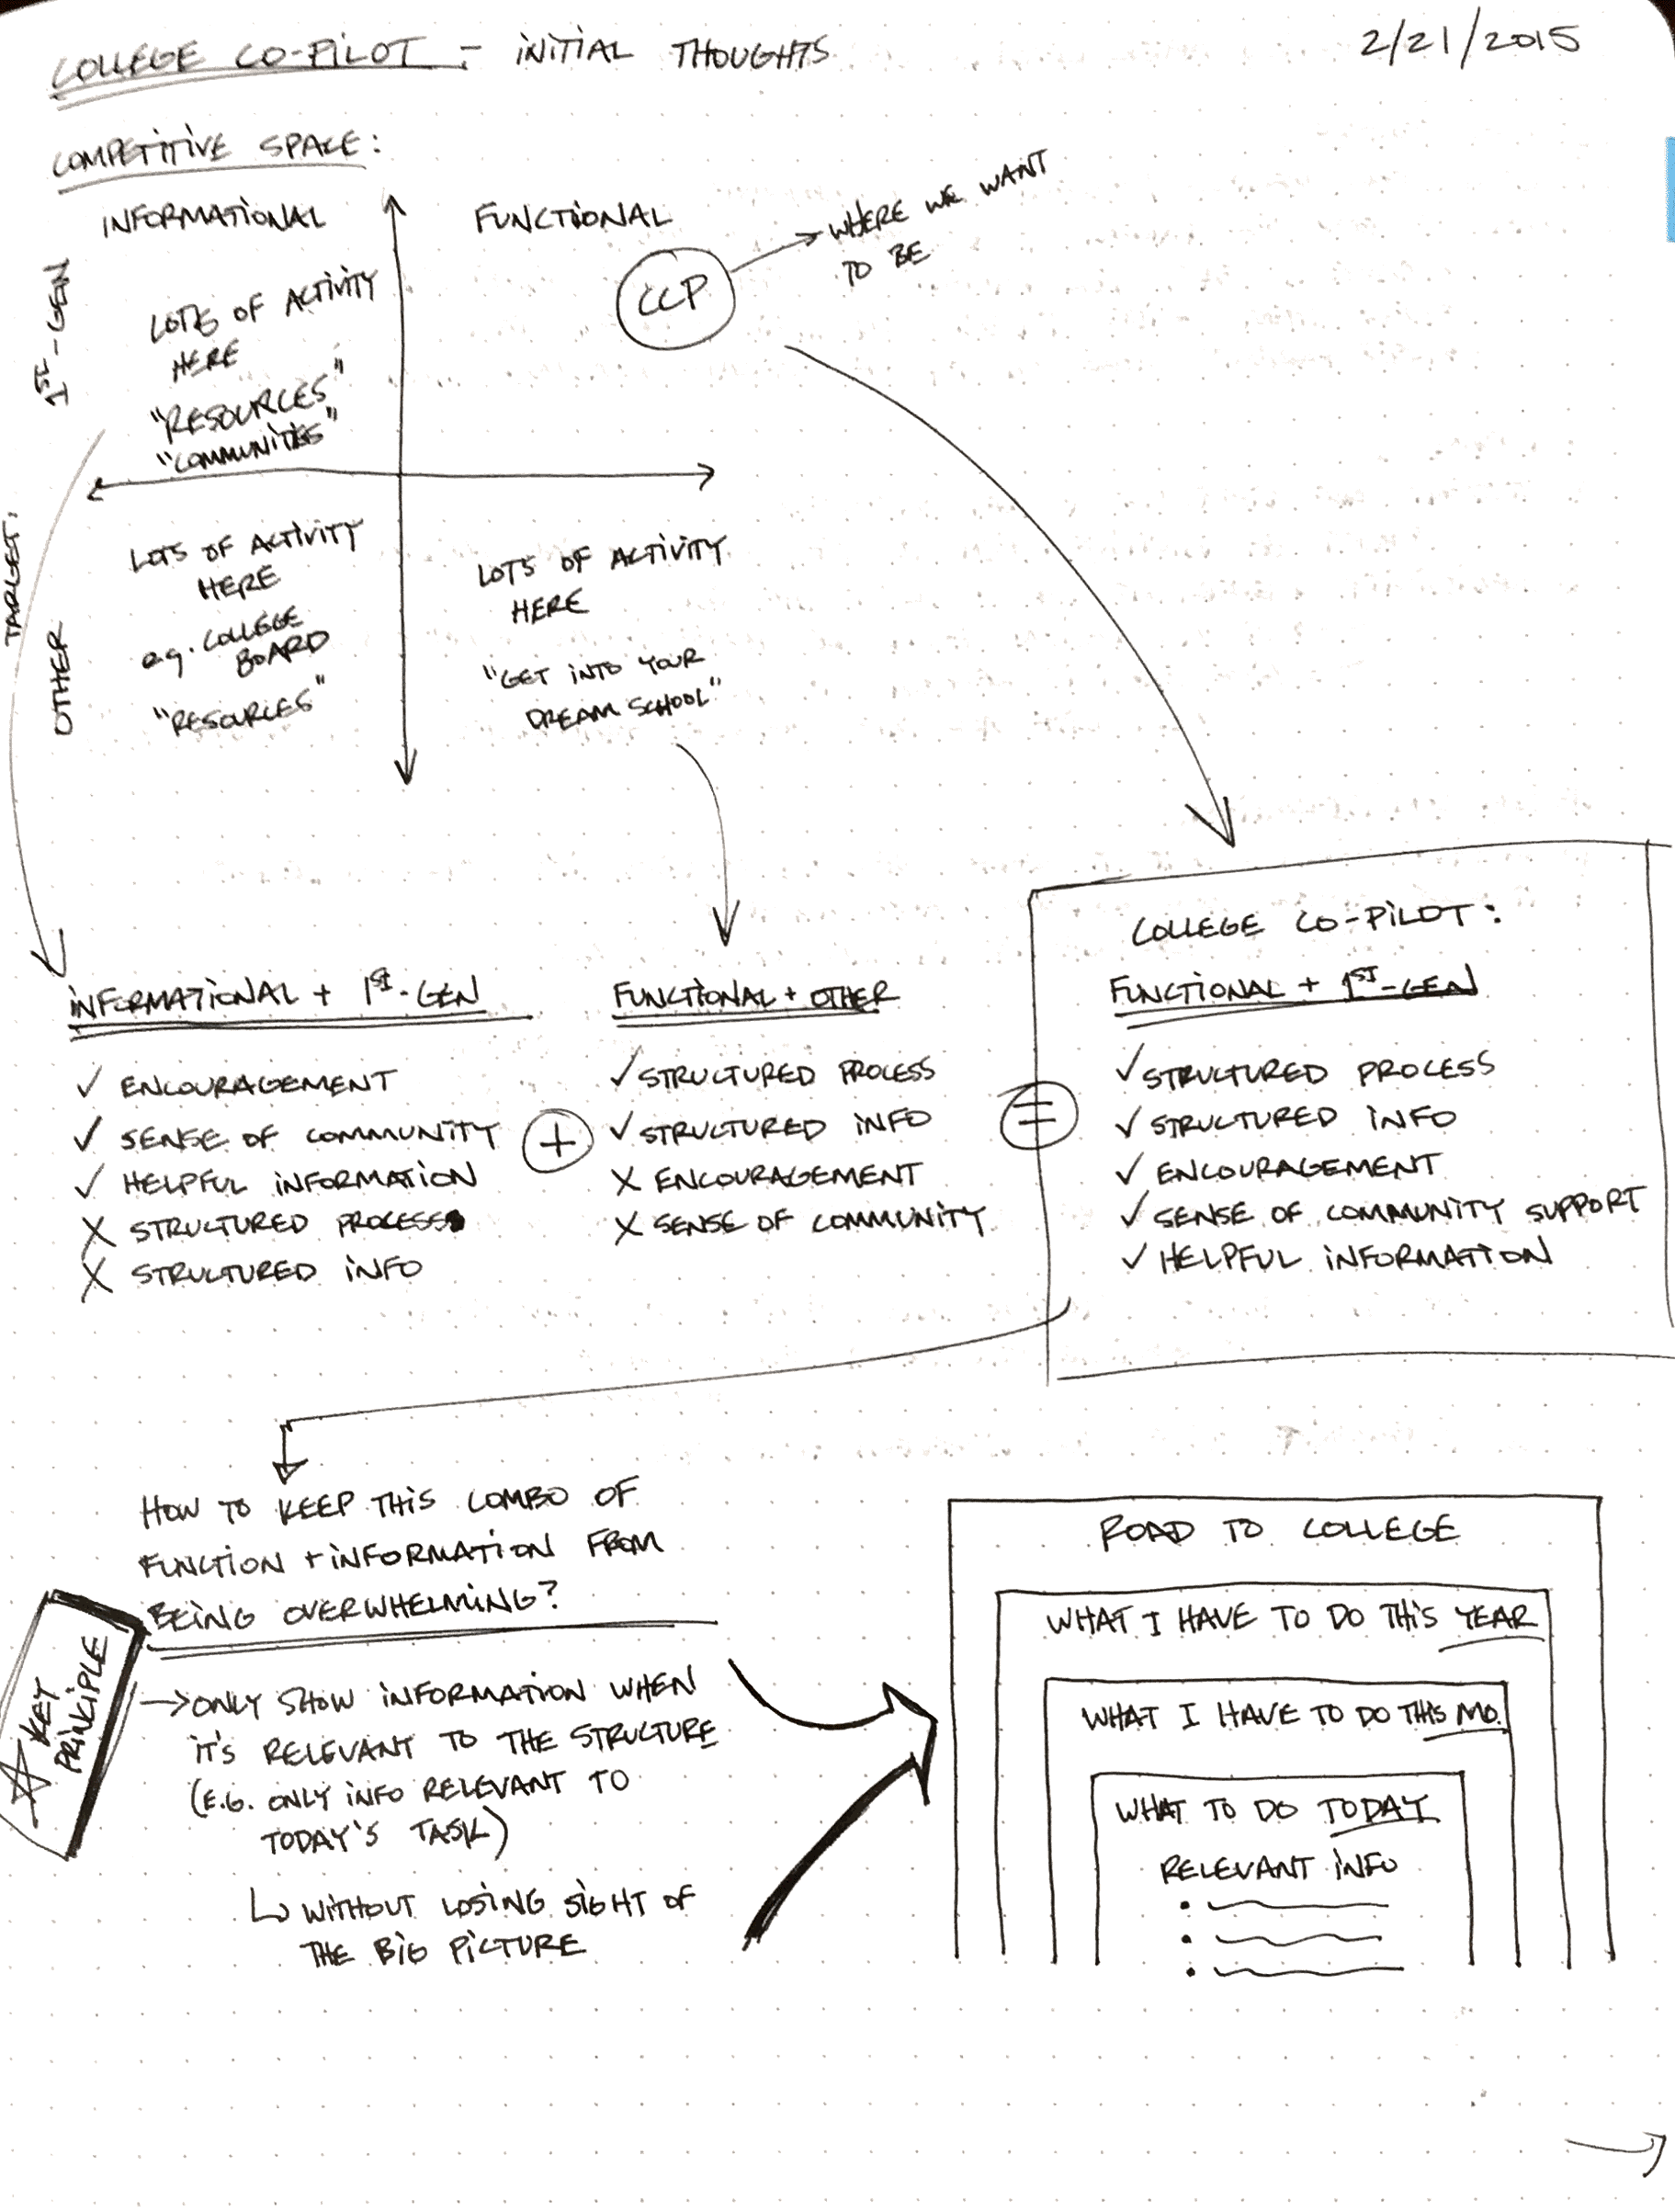 COLLEGE CO-PILOT - INITIAL THOUGHTS
2/21/2015
COMPETITIVE SPACE:
INFORMATIONAL
FUNCTIONAL
TARGET:
1ST-GEN
OTHER
LOTS OF ACTIVITY
HERE
"RESOURCES"
"COMMUNITIES"
CCP
WHERE WE WANT
TO BE
LOTS OF ACTIVITY
HERE
e.g. COLLEGE
BOARD
"RESOURCES"
LOTS OF ACTIVITY
HERE
"GET INTO YOUR
DREAM SCHOOL"
INFORMATIONAL + 1ST-GEN
✓ ENCOURAGEMENT
✓ SENSE OF COMMUNITY
✓ HELPFUL INFORMATION
X STRUCTURED PROCESS
X STRUCTURED INFO
+
FUNCTIONAL + OTHER
✓ STRUCTURED PROCESS
✓ STRUCTURED INFO
X ENCOURAGEMENT
X SENSE OF COMMUNITY
=
COLLEGE CO-PILOT:
FUNCTIONAL + 1ST-GEN
✓ STRUCTURED PROCESS
✓ STRUCTURED INFO
✓ ENCOURAGEMENT
✓ SENSE OF COMMUNITY SUPPORT
✓ HELPFUL INFORMATION
HOW TO KEEP THIS COMBO OF
FUNCTION + INFORMATION FROM
BEING OVERWHELMING?
KEY
PRINCIPLE
→ ONLY SHOW INFORMATION WHEN
IT'S RELEVANT TO THE STRUCTURE
(E.G. ONLY INFO RELEVANT TO
TODAY'S TASK)
↳ WITHOUT LOSING SIGHT OF
THE BIG PICTURE
ROAD TO COLLEGE
WHAT I HAVE TO DO THIS YEAR
WHAT I HAVE TO DO THIS MO.
WHAT TO DO TODAY
RELEVANT INFO